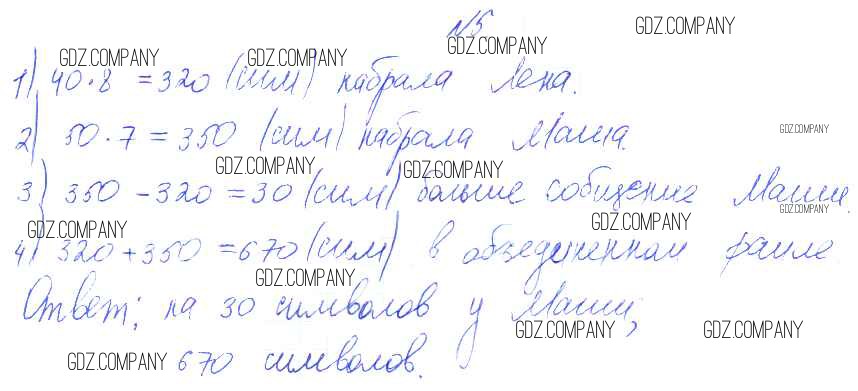 №5
1) 40·8 = 320 (сим) набрала Лена.
2) 50·7 = 350 (сим) набрала Маша.
3) 350 - 320 = 30 (сим) больше сообщение Маши.
4) 320 + 350 = 670 (сим) в объединенном файле
Ответ: на 30 символов у Маши,
670 символов.
GDZ.COMPANY
GDZ.COMPANY
GDZ.COMPANY
GDZ.COMPANY
GDZ.COMPANY
GDZ.COMPANY
GDZ.COMPANY
GDZ.COMPANY
GDZ.COMPANY
GDZ.COMPANY
GDZ.COMPANY
GDZ.COMPANY
GDZ.COMPANY
GDZ.COMPANY